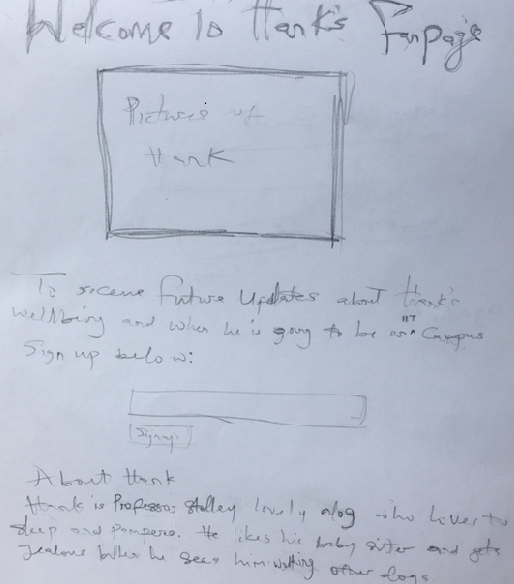 Welcome To Hank's Fanpage
Pictures of
Hank
To receive Future Updates about Hank's
wellbing and when he is going to be on Campus
Sign up below:
Signup
About Hank
Hank is Professor lovely who loves to
sleep and He likes his baby sister and gets
Jealous when he sees him walking other dogs